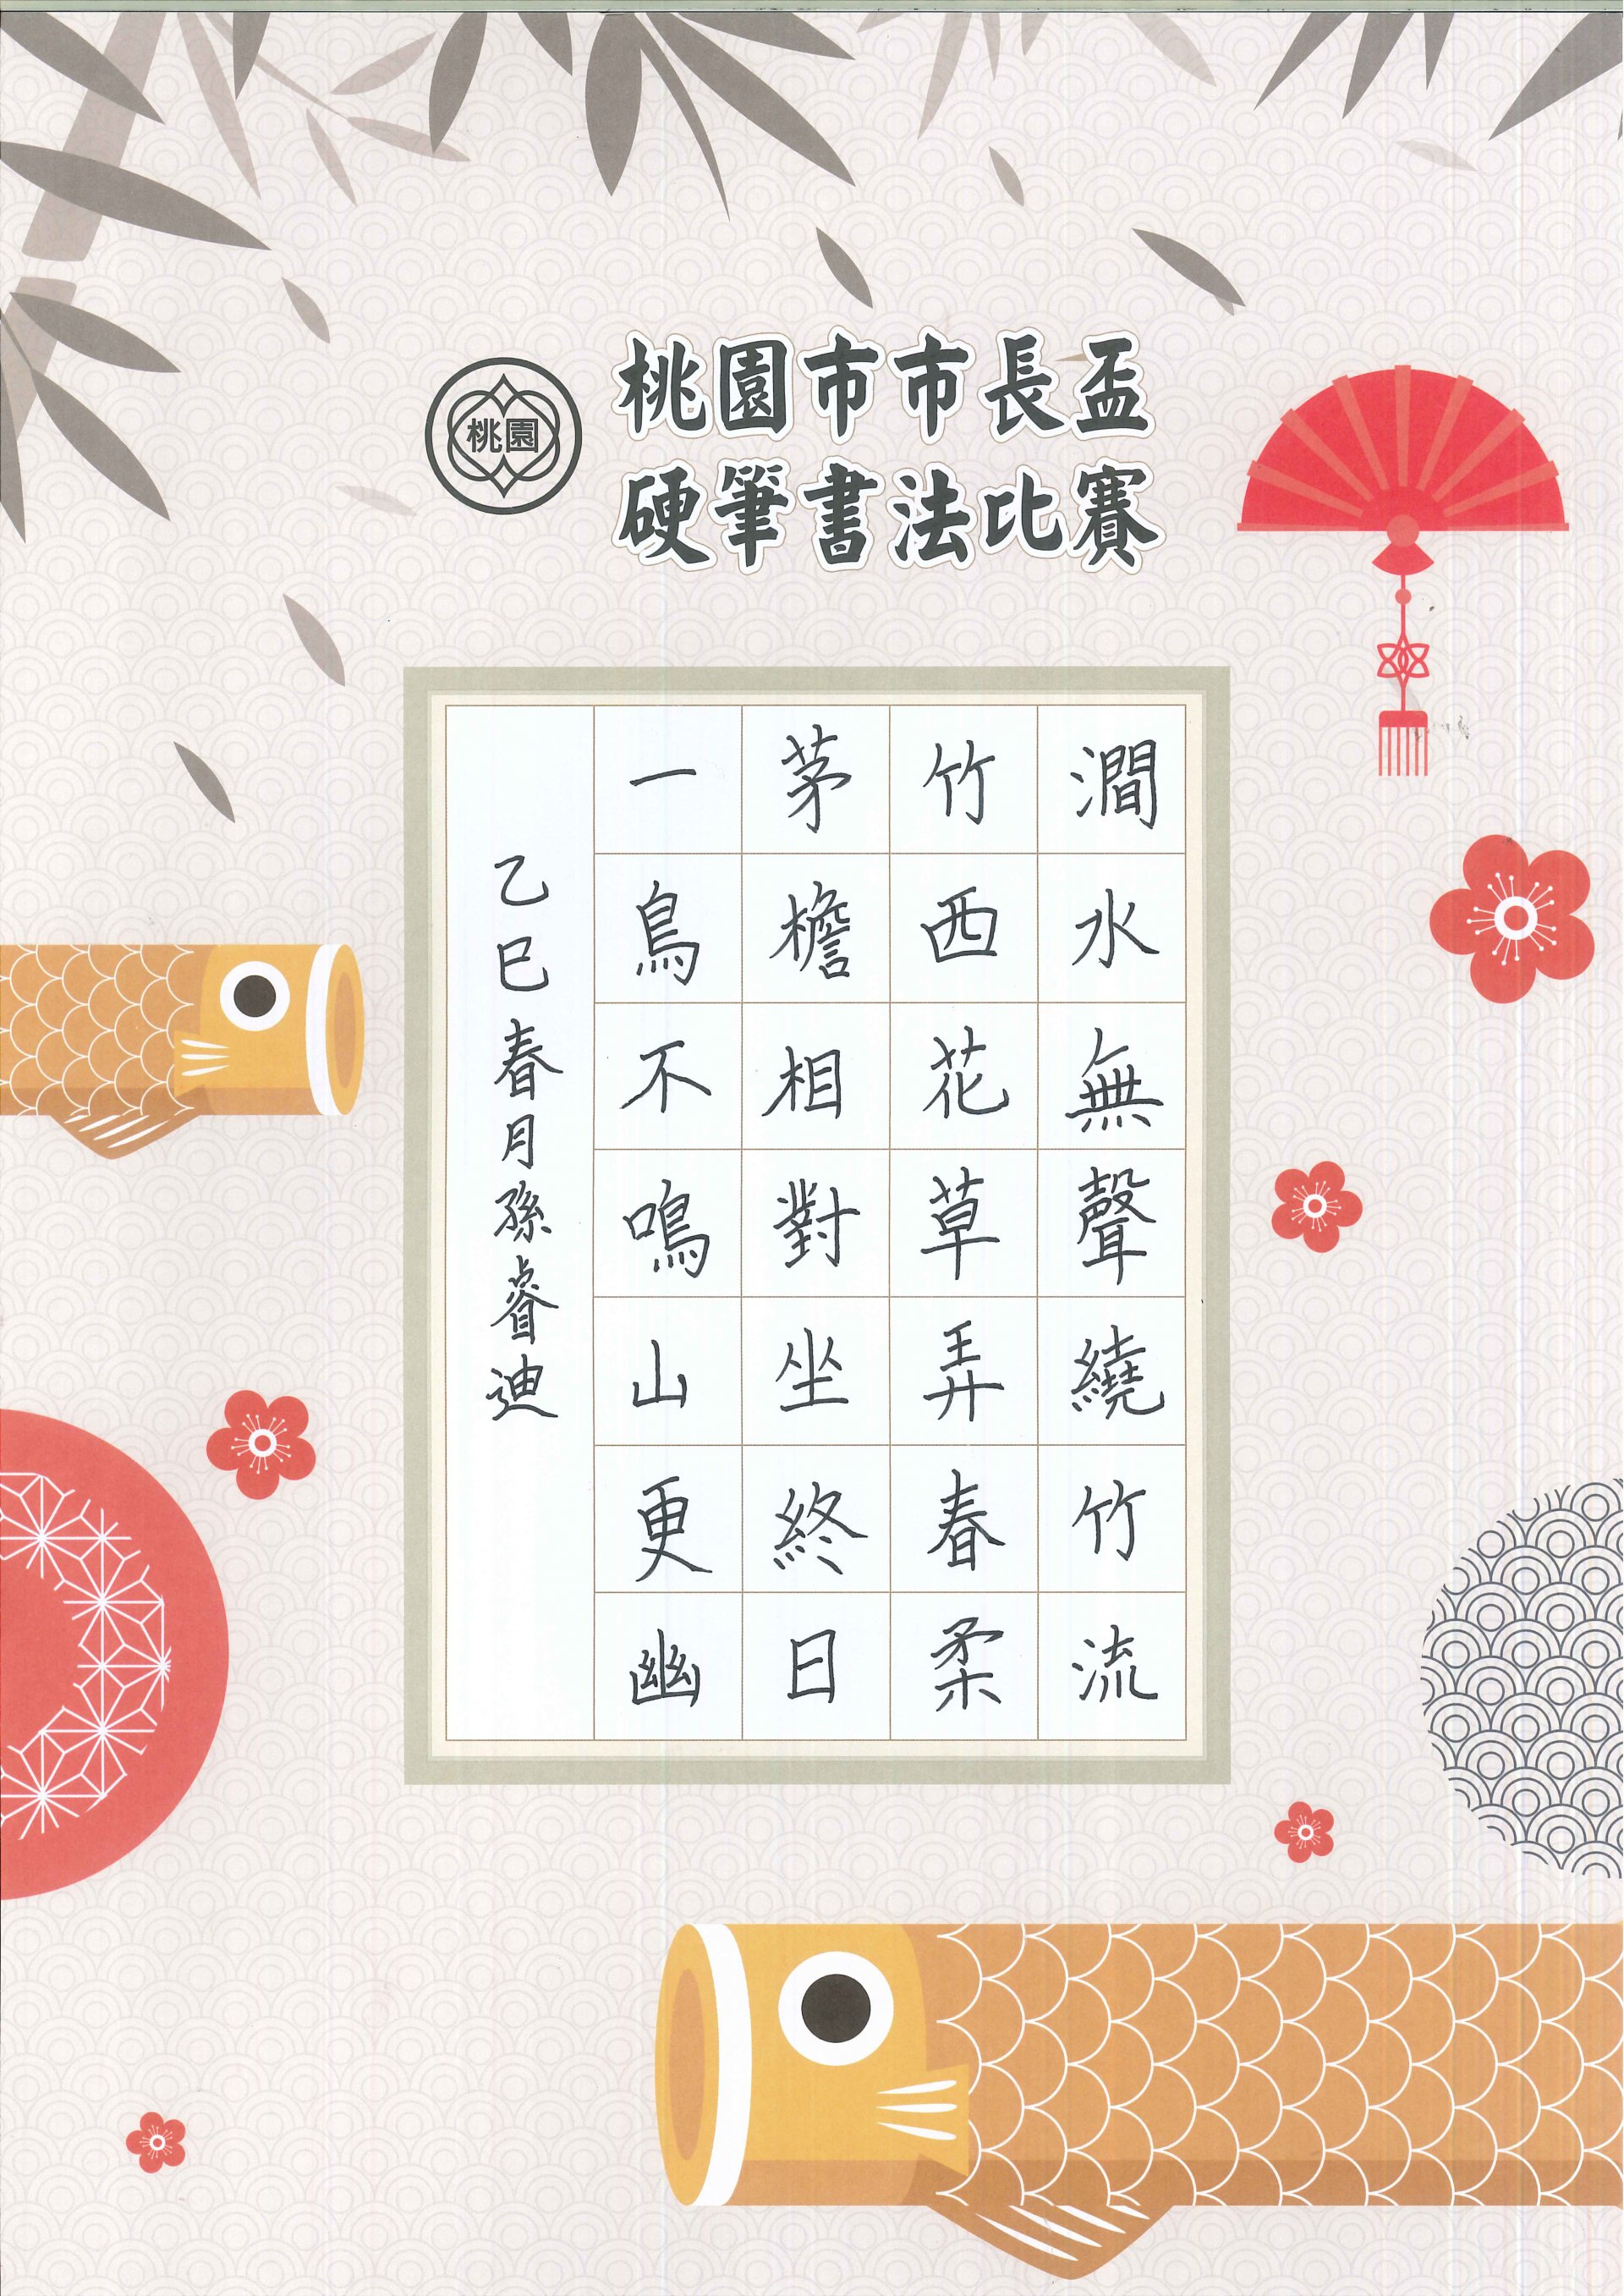 桃園
桃園市市長盃
硬筆書法比賽
澗水無聲繞竹流
竹西花草弄春柔
茅檐相對坐終日
一鳥不鳴山更幽
乙巳春月孫睿迪